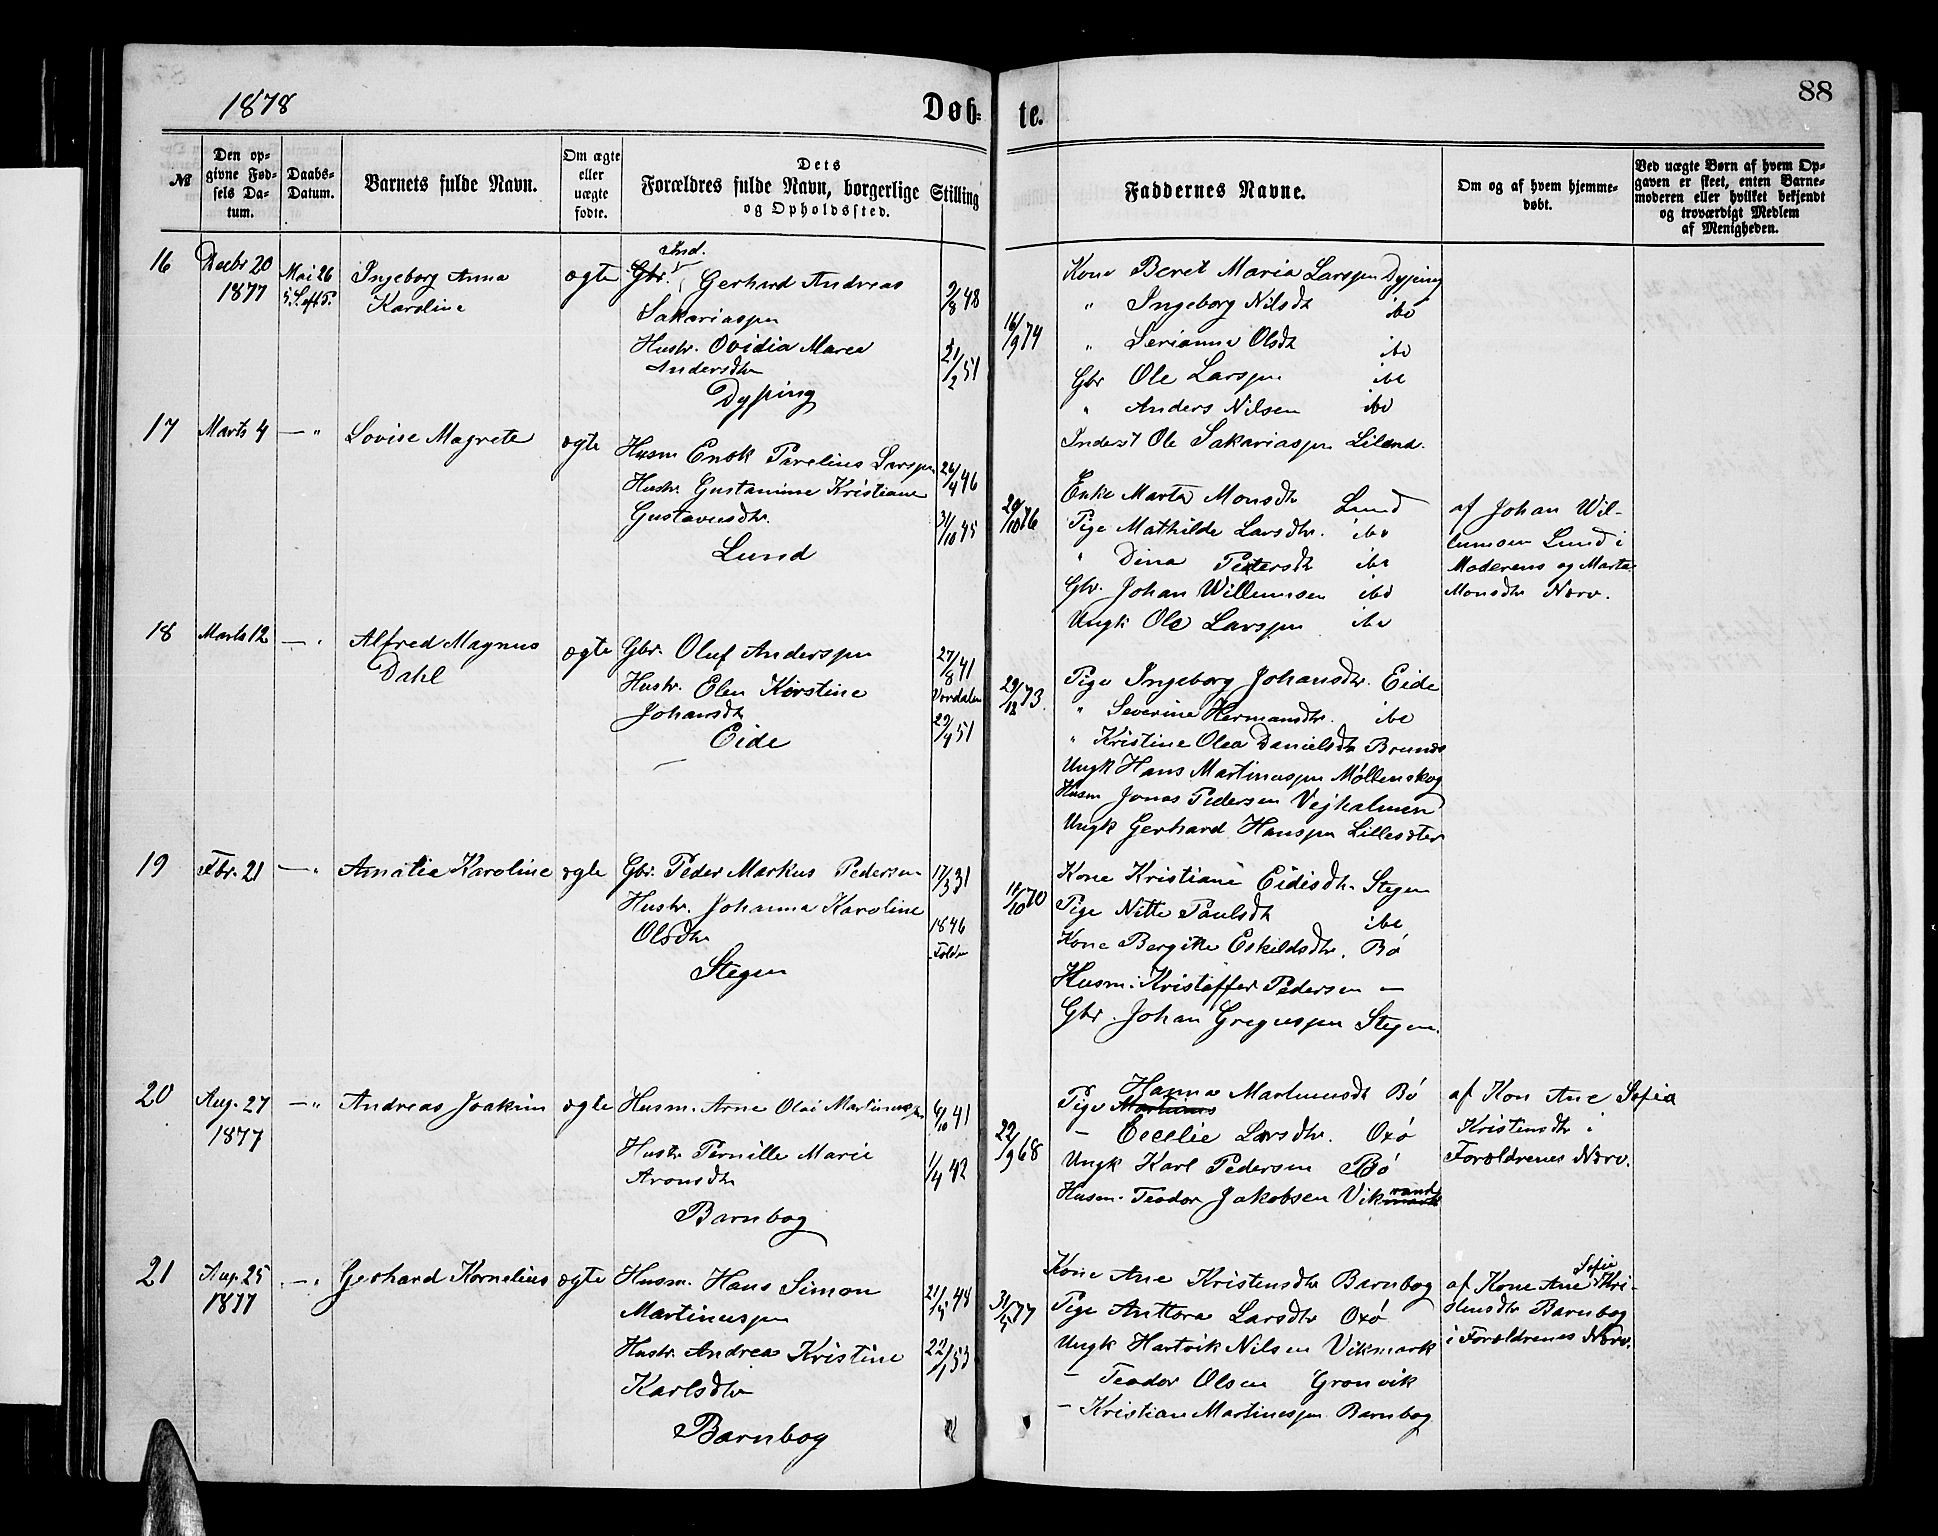 1878
Døb-
te.
88
№
Den opgivne Fødsels Datum.
Daabs-Datum.
Barnets fulde Navn.
Om ægte eller uægte fødte.
Dets Forældres fulde Navn, borgerlige Stilling og Opholdssted.
Faddernes Navne.
Om og af hvem hjemmedøbt.
Ved uægte Børn af hvem Opgaven er skeet, enten Barnemoderen eller hvilket bekjendt og troværdigt Medlem af Menigheden.
16
Decbr 20
1877
Mai 26
5.S. eft P.
Ingeborg Anna
Karoline
ægte
Ind.
Gbr. Gerhard Andreas
Sakariassen
Hustr. Ovidia Marea
Andersdtr
Dypping
9/8 48
21/2 51
16/9 74
Kone Beret Maria Larssen Dyping
" Ingeborg Nilsdt ibd
" Serianna Olsdt ibd
Gbr Ole Larssen ibd
" Anders Nilsen ibd
Inderst Ole Sakariassen Liland.
17
Marts 4
— "
Lovise Magrete
ægte
Husm Enok Parelius Larssen
Hustr. Gustamine Kristiane
Gustavusdtr.
Lund
26/4 46
31/10 45
29/10 76
Enke Marta Monsdt Lund
Pige Mathilde Larsdtr. ibd
" Dina Petersdt ibd
Gbr. Johan Willumsen ibd
Ungk Ole Larssen ibd
af Johan Wil-
lumsen Lund i
Moderens og Marta
Monsdtr Nærv.
18
Marts 12
— "
Alfred Magnus
Dahl
ægte
Gbr. Oluf Anderssen
Hustr. Elen Kirstine
Johansdt
Eide
27/8 41
Verdalen
29/4 51
29/12 73.
Pige Ingeborg Johansdtr. Eide
" Severine Hermansdtr. ibd
" Kristine Olea Danielsdtr Brunes
Ungk Hans Martinussen Möllenskog
Husm Jonas Pedersen Vejhalmen
Ungk Gerhard Hanssen Lillesdter
19
Fbr. 21
— "
Amalia Karoline
ægte
Gbr. Peder Markus Pedersen
Hustr. Johanna Karoline
Olsdtr
Stegen
17/3 31
1846
Folden
11/10 70
Kone Kristiane Eidisdtr. Stegen
Pige Nitte Paulsdt ibd
Kone Bergitte Eskildsdtr. Bø
Husm. Kristoffer Pedersen —
Gbr. Johan Gregussen Stegen.
20
Aug. 27
1877
— "
Andreas Joakim
ægte
Husm. Arne Olai Martinussen
Hustr Pernille Marie
Aronsdtr
Barnbog
6/10 41
1/4 42
22/9 68
Hanna Martinusdt Bø
Pige
— Cecelie Larsdtr. Oxø
Ungk Karl Pedersen Bø
Husm. Teodor Jakobsen Vikrand
af Kon Ane Sofia
Kristensdtr i
Forældrenes Nærv.
21
Aug. 25
1877
— "
Gerhard Kornelius
ægte
Husm. Hans Simon
Martinussen
Hustr. Andrea Kristine
Karlsdtr
Barnbog
21/5 48
22/1 53
31/5 77
Kone Ane Kristensdtr Barnbog
Pige Anttora Larsdtr Oxø
Ungk Hartvik Nilsen Vikmark
— Teodor Olsen Grønvik
— Kristian Martinussen Barnbog
af Kone Ane Sofie Kri-
stensdtr Barnbog
i Forældrenes Nærv.